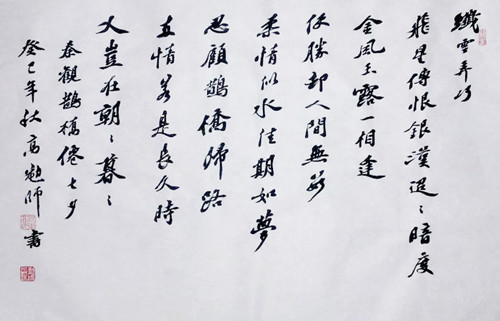 纖雲弄巧
飛星傳恨銀漢迢々暗度
金風玉露一相逢
便勝却人間無數
柔情似水佳期如夢
忍顧鵲橋歸路
兩情若是長久時
又豈在朝々暮々
秦觀鵲橋僊七夕
癸巳年秋高師書